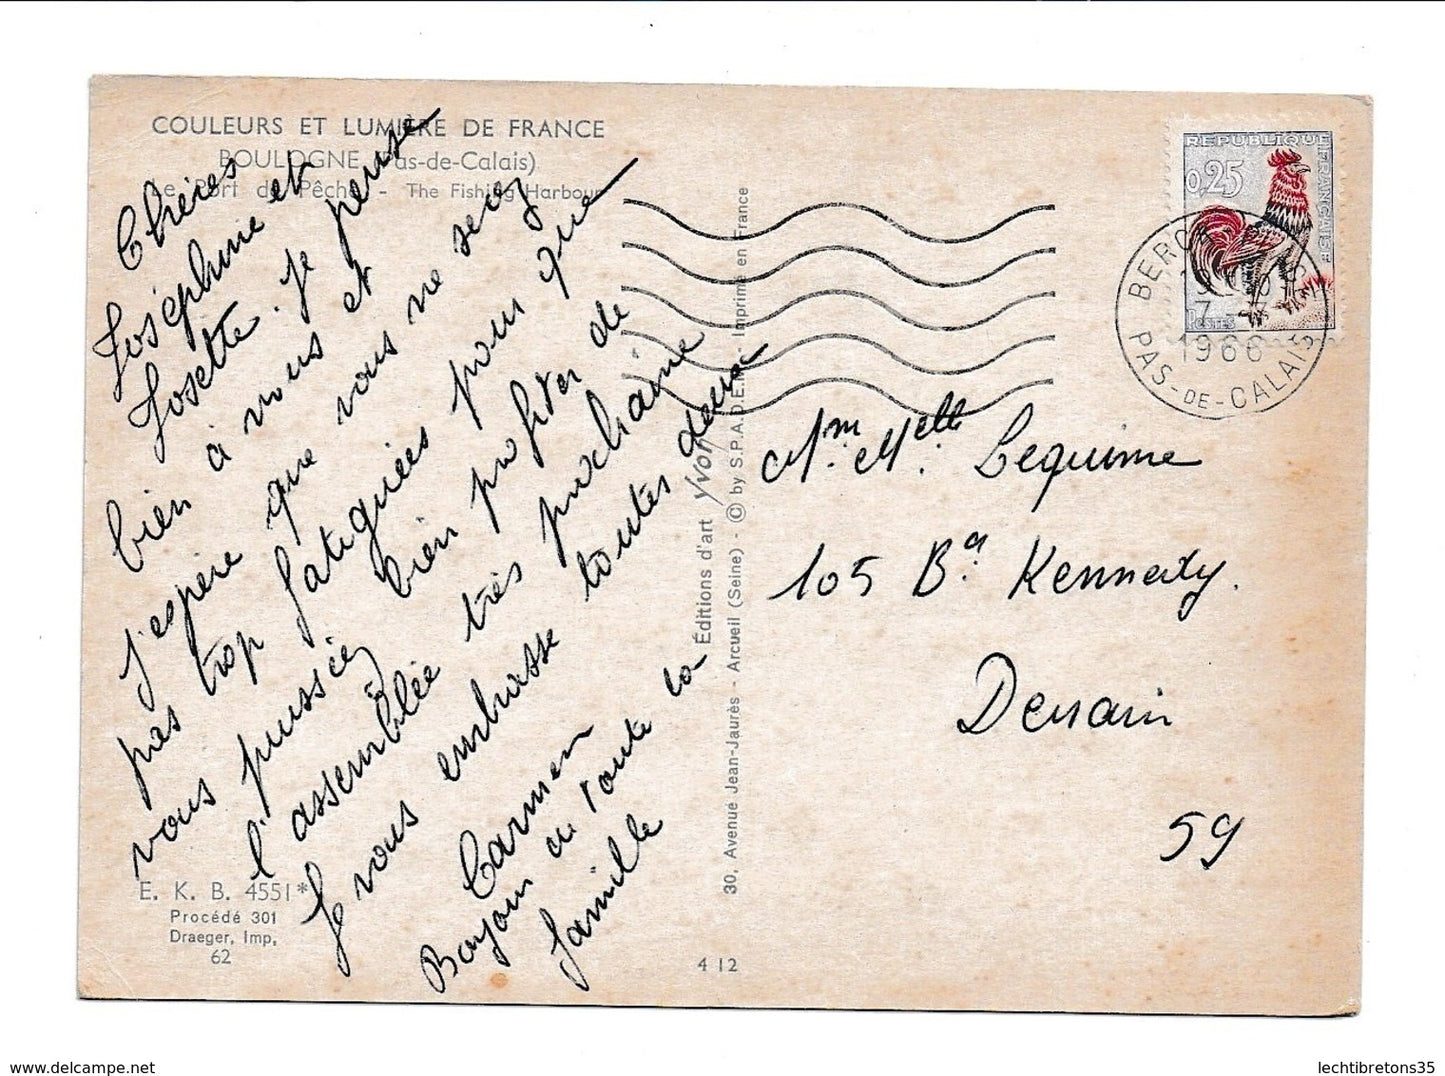 COULEURS ET LUMIÈRE DE FRANCE
BOULOGNE (Pas-de-Calais)
Le Port de Pêche - The Fishing Harbour
Chères
Joséphine et
Josette. Je pense
bien à vous et
j'espère que vous ne serez
pas trop fatiguées pour que
vous pussiez bien profiter de
l'assemblée très prochaine
Je vous embrasse toutes deux
Carmen
Bonjour de toute la
famille
E. K. B. 4551*
Procédé 301
Draeger, Imp.
62
4 12
Éditions d'art Yvon
30, Avenue Jean-Jaurès - Arcueil (Seine) - © by S.P.A.D.E.M. - Imprimé en France
REPUBLIQUE FRANÇAISE
0,25
POSTES
BERCK
PAS-DE-CALAIS
1966
Mm. Melle. Lequime
105 Bd. Kennedy.
Denain
59
www.delcampe.net
lechtibretons35